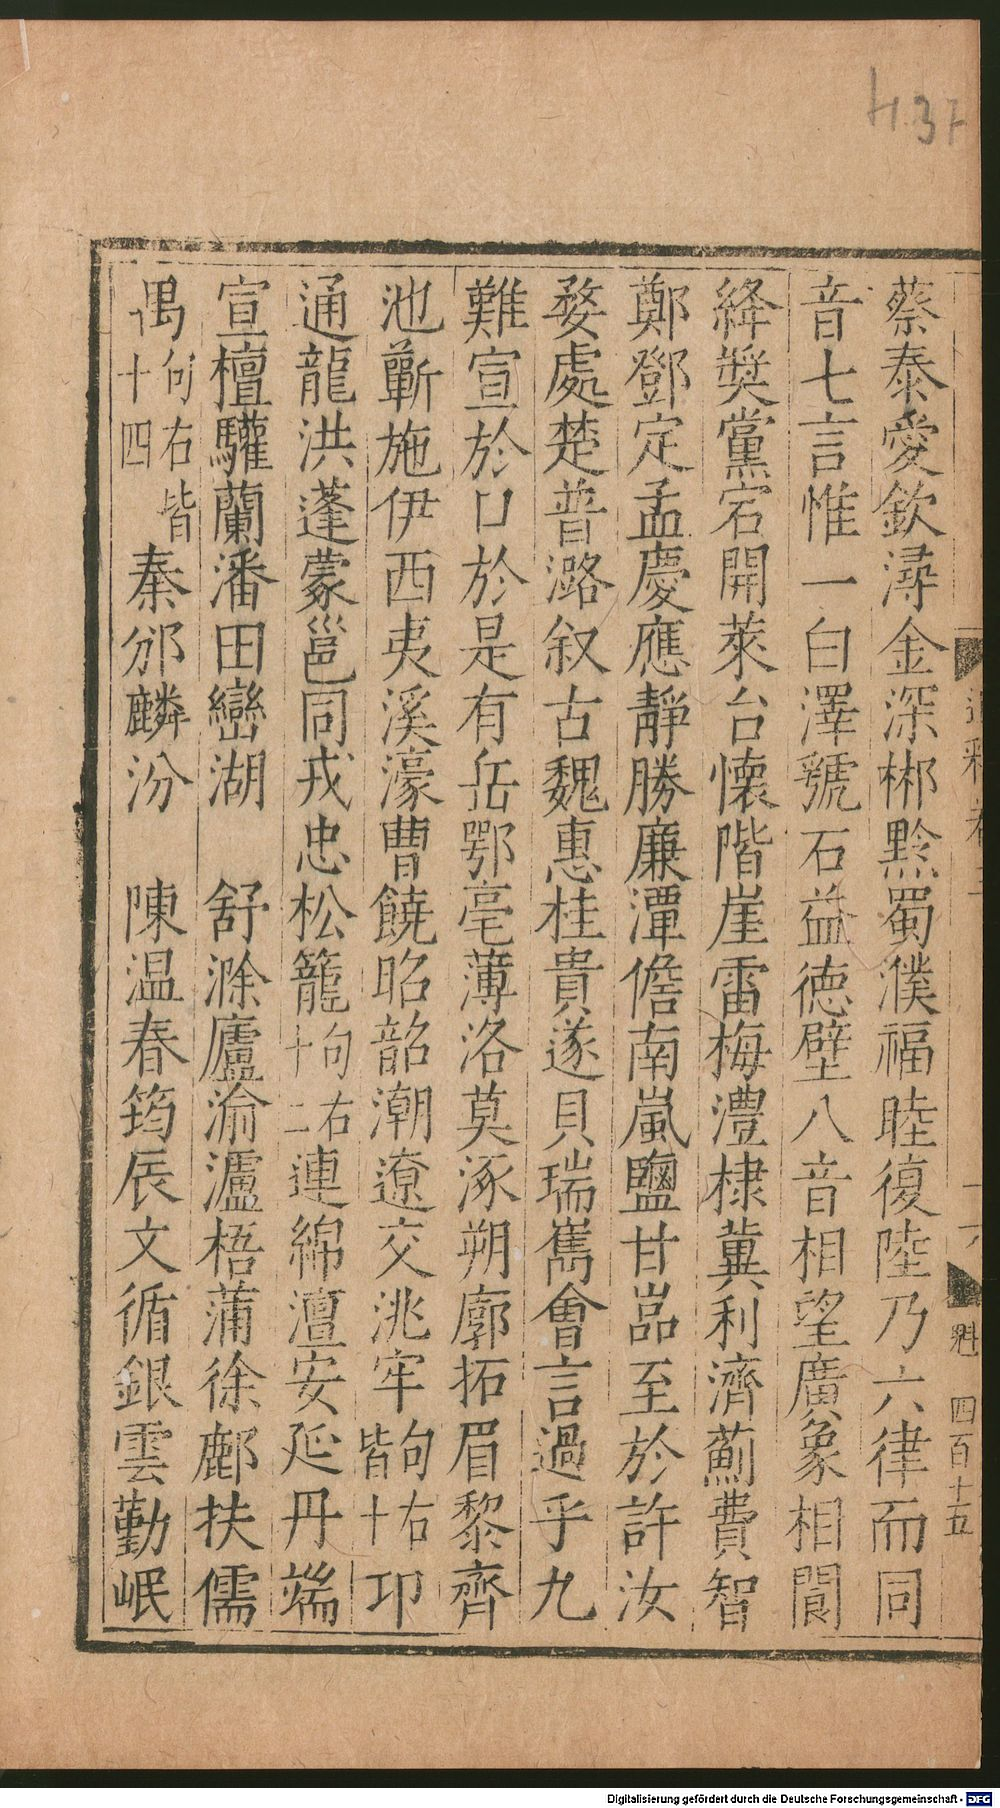 437
蔡泰愛欽潯金深郴黔蜀濮福睦復陸乃六律而同
音七言惟一白澤虢石益德壁八音相望廣象相閬
絳奬黨宕開萊台懷階崖雷梅澧棣冀利濟薊費智
鄭鄧定孟慶應靜勝廉潭儋南嵐鹽甘嵓至於許汝
婺處楚普潞叙古魏惠桂貴遂貝瑞雋會言過乎九
難宣於口於是有岳鄂亳薄洛莫涿朔廓拓眉黎齊
池蘄施伊西夷溪濠曹饒昭韶潮遼交洮牢句右皆十卭
通龍洪蓬蒙邕同戎忠松籠句右十二連綿澶安延丹端
宣檀驩蘭潘田巒湖 舒滁廬渝瀘梧蒲徐鄜扶儒
禺句右皆十四秦邠麟汾 陳温春筠辰文循銀雲勤岷
四百十五
Digitalisierung gefördert durch die Deutsche Forschungsgemeinschaft - DFG